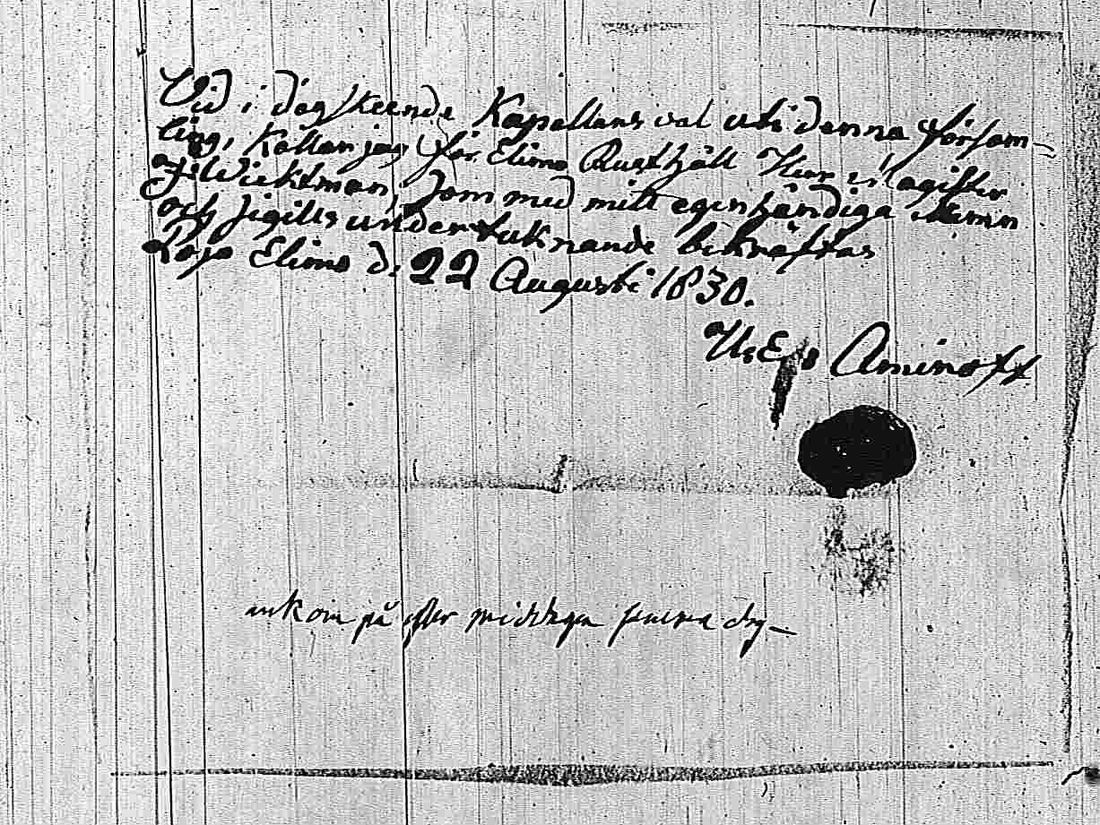 Vid i dag skeende Kapellans val uti denna försam-
ling, Kallar jag för Elimo Rusthåll Herr Magister
Wicktman, som med mitt egenhändiga Namn
och sigills undertecknande bekräftas
Lojo Elimo d. 22 Augusti 1830.
Aminoff
ankom på efter middagen samma dag—